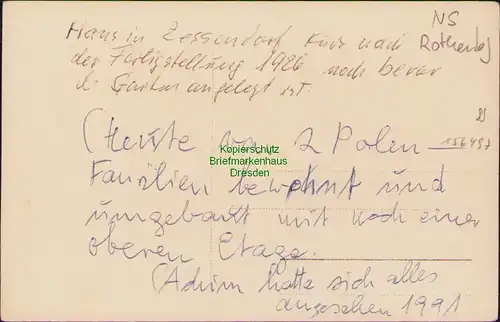 Haus in Zessendorf kurz nach
der Fertigstellung 1926 noch bevor
d. Garten angelegt ist.
NS
Rothenbg
(Heute von 2 Polen
156497
Familien bewohnt und
umgebaut mit noch einer
oberen Etage.
(Achim hatte sich alles
angesehen 1991
Kopierschutz
Briefmarkenhaus
Dresden